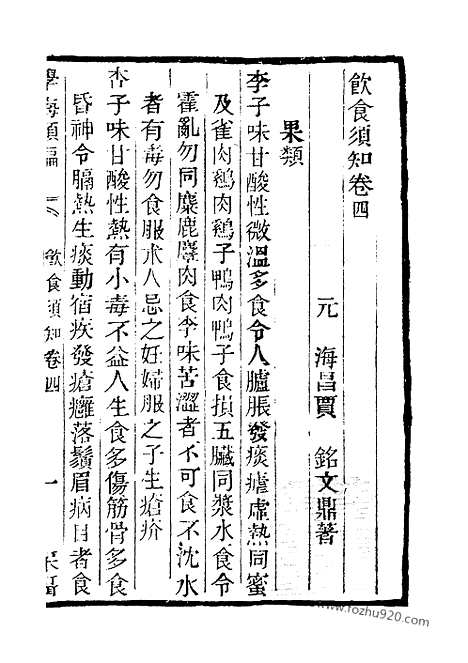 飲食須知卷四
元 海昌賈 銘文鼎著
果類
李子味甘酸性微溫多食令人臚脹發痰瘧虛熱同蜜
及雀肉鷄肉鷄子鴨肉鴨子食損五臟同漿水食令
霍亂勿同麋鹿麞肉食李味苦澀者不可食不沈水
者有毒勿食服朮人忌之妊婦服之子生瘡疥
杏子味甘酸性熱有小毒不益人生食多傷筋骨多食
昏神令膈熱生痰動宿疾發瘡癰落鬚眉病目者食
學海類編
飲食須知卷四
一
www.fozhu920.com